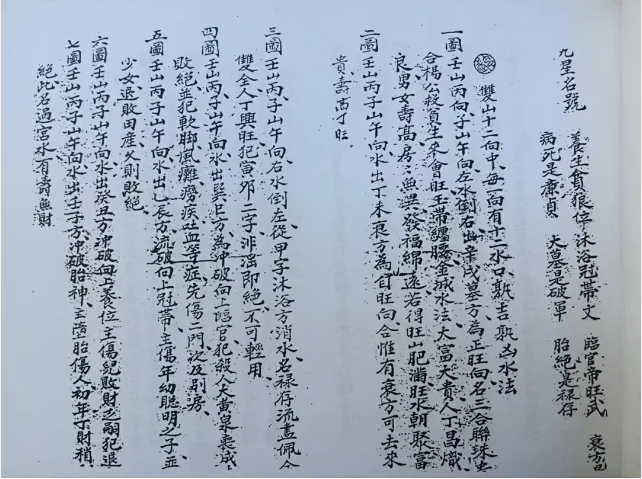 九星名號　養生貪狼位　沐浴冠帶文　臨官帝旺武　衰方巨
病死是廉貞　大墓是破軍　胎絕是祿存
雙山十二向中每一向有十二水口孰吉孰凶水法
一圖壬山丙向子山午向左水倒右出辛戌墓方為正旺向名三合聯珠
合楊公救貧生來會旺玉帶纏腰金城水法大富大貴人丁昌熾
良男女壽高房房異發福綿遠若得旺山肥滿旺水朝聚富
貴壽高丁旺
二圖壬山丙子山午向水出丁未衰方為自旺向合惟有衰方可去來
三圖壬山丙子山午向右水倒左從甲字沐浴方消水名祿存流盡佩金
雙全人丁興旺犯寅卯二字非淫即絕不可輕用
四圖壬山丙子山午向水出巽巳方為沖破向上臨官犯殺人大黃泉喪成
敗絕並犯軟腳風癱癆疾吐血等症先傷二門次及別房
五圖壬山丙子山午向水出乙辰方流破向上冠帶主傷年幼聰明之子並
少女退敗田産久則敗絕
六圖壬山丙子山午向水出癸丑方沖破向上養位主傷妻敗財乏嗣犯退
七圖壬山丙子山午向水出壬子方沖破胎神主墮胎傷人初年丁財稍
絕此名過宮水有壽無財